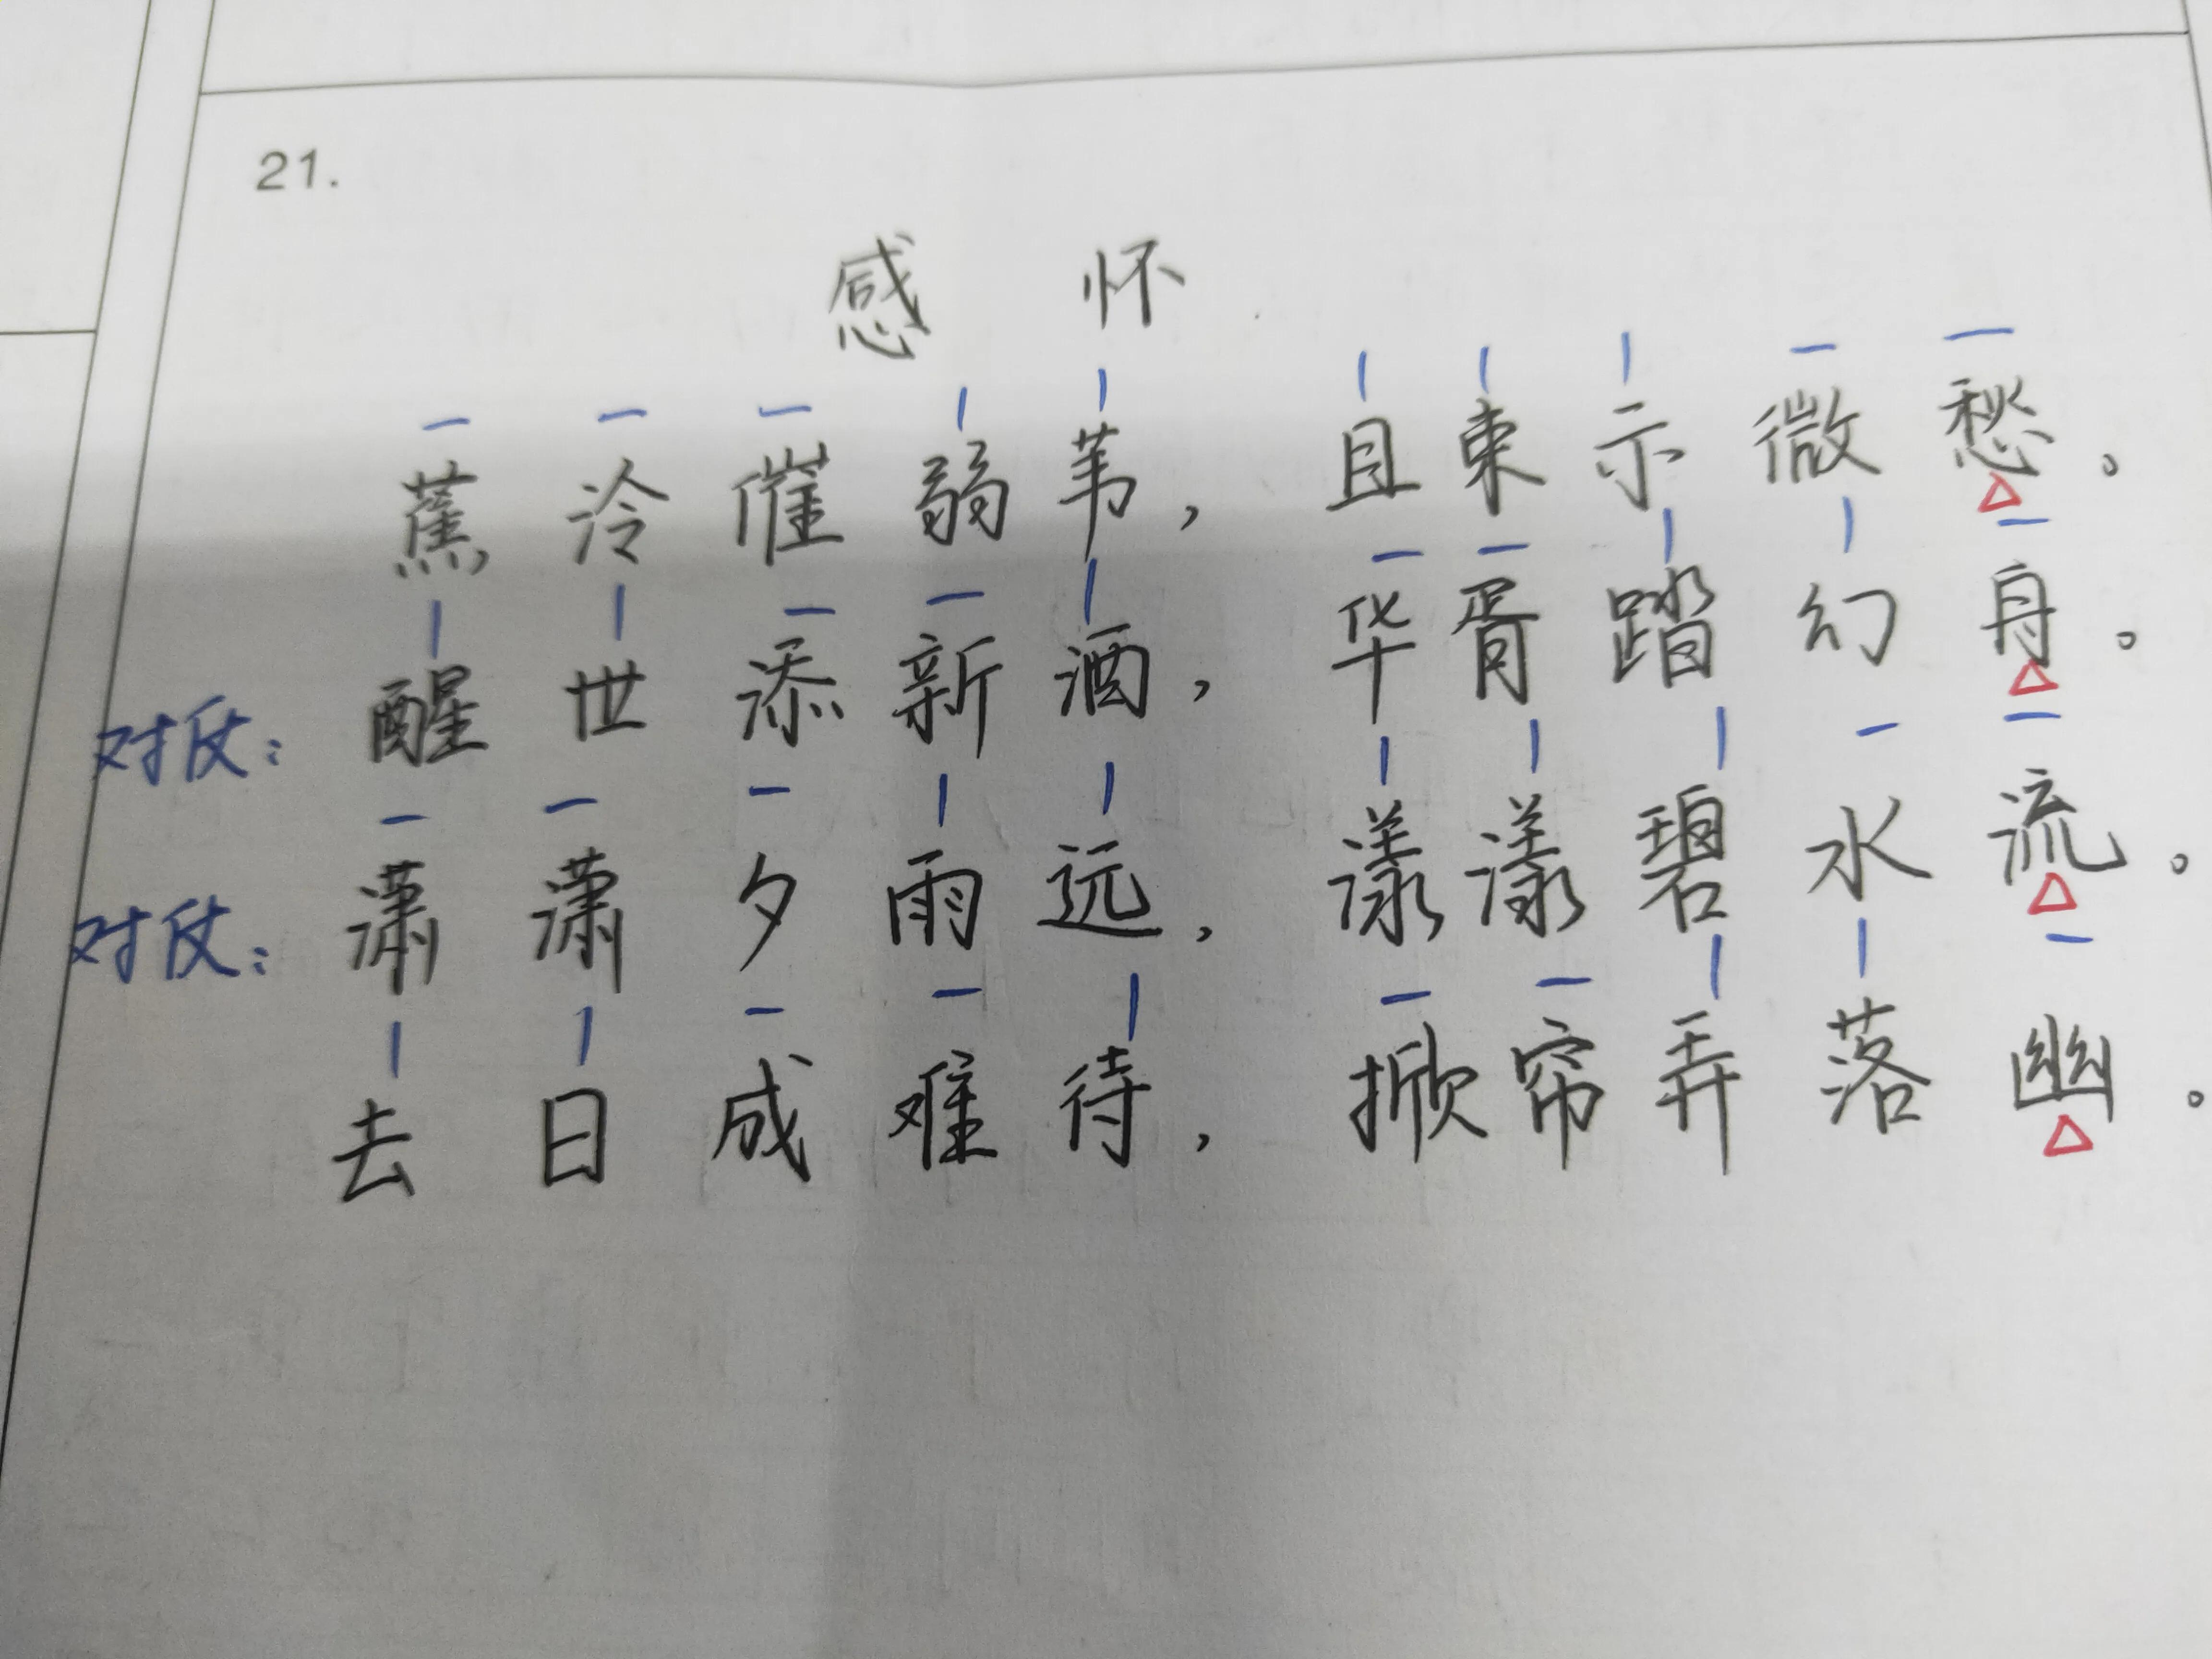 21.
感怀
蕉冷催弱苇，且束示微愁。
对仗：醒世添新酒，华胥踏幻舟。
对仗：潇潇夕雨远，漾漾碧水流。
去日成难待，掀帘弄落幽。